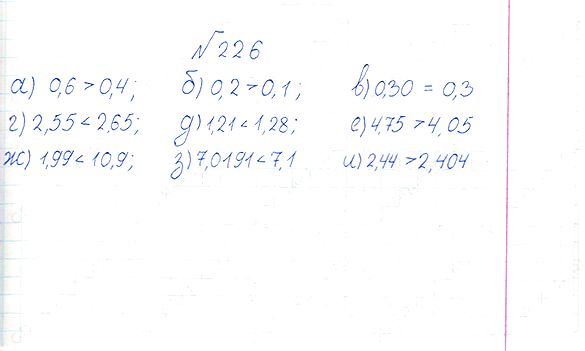 №226
а) 0,6 > 0,4; б) 0,2 > 0,1; в) 0,30 = 0,3
г) 2,55 < 2,65; д) 1,21 < 1,28; е) 4,75 > 4,05
ж) 1,99 < 10,9; з) 7,0191 < 7,1 и) 2,44 > 2,404